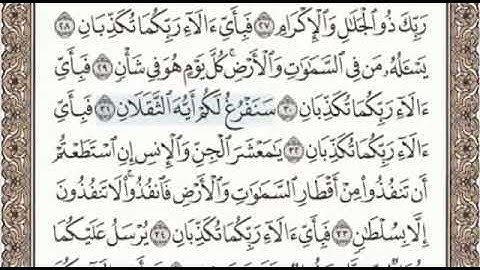 رَبِّكَ ذُو الْجَلَالِ وَالْإِكْرَامِ ٢٧ فَبِأَيِّ ءَالَاءِ رَبِّكُمَا تُكَذِّبَانِ ٢٨
يَسْـَٔلُهُۥ مَن فِي السَّمَٰوَٰتِ وَالْأَرْضِ ۚ كُلَّ يَوْمٍ هُوَ فِي شَأْنٍ ٢٩ فَبِأَيِّ
ءَالَاءِ رَبِّكُمَا تُكَذِّبَانِ ٣٠ سَنَفْرُغُ لَكُمْ أَيُّهَ الثَّقَلَانِ ٣١ فَبِأَيِّ
ءَالَاءِ رَبِّكُمَا تُكَذِّبَانِ ٣٢ يَٰمَعْشَرَ الْجِنِّ وَالْإِنسِ إِنِ اسْتَطَعْتُمْ
أَن تَنفُذُوا مِنْ أَقْطَارِ السَّمَٰوَٰتِ وَالْأَرْضِ فَانفُذُوا ۚ لَا تَنفُذُونَ
إِلَّا بِسُلْطَٰنٍ ٣٣ فَبِأَيِّ ءَالَاءِ رَبِّكُمَا تُكَذِّبَانِ ٣٤ يُرْسَلُ عَلَيْكُمَا